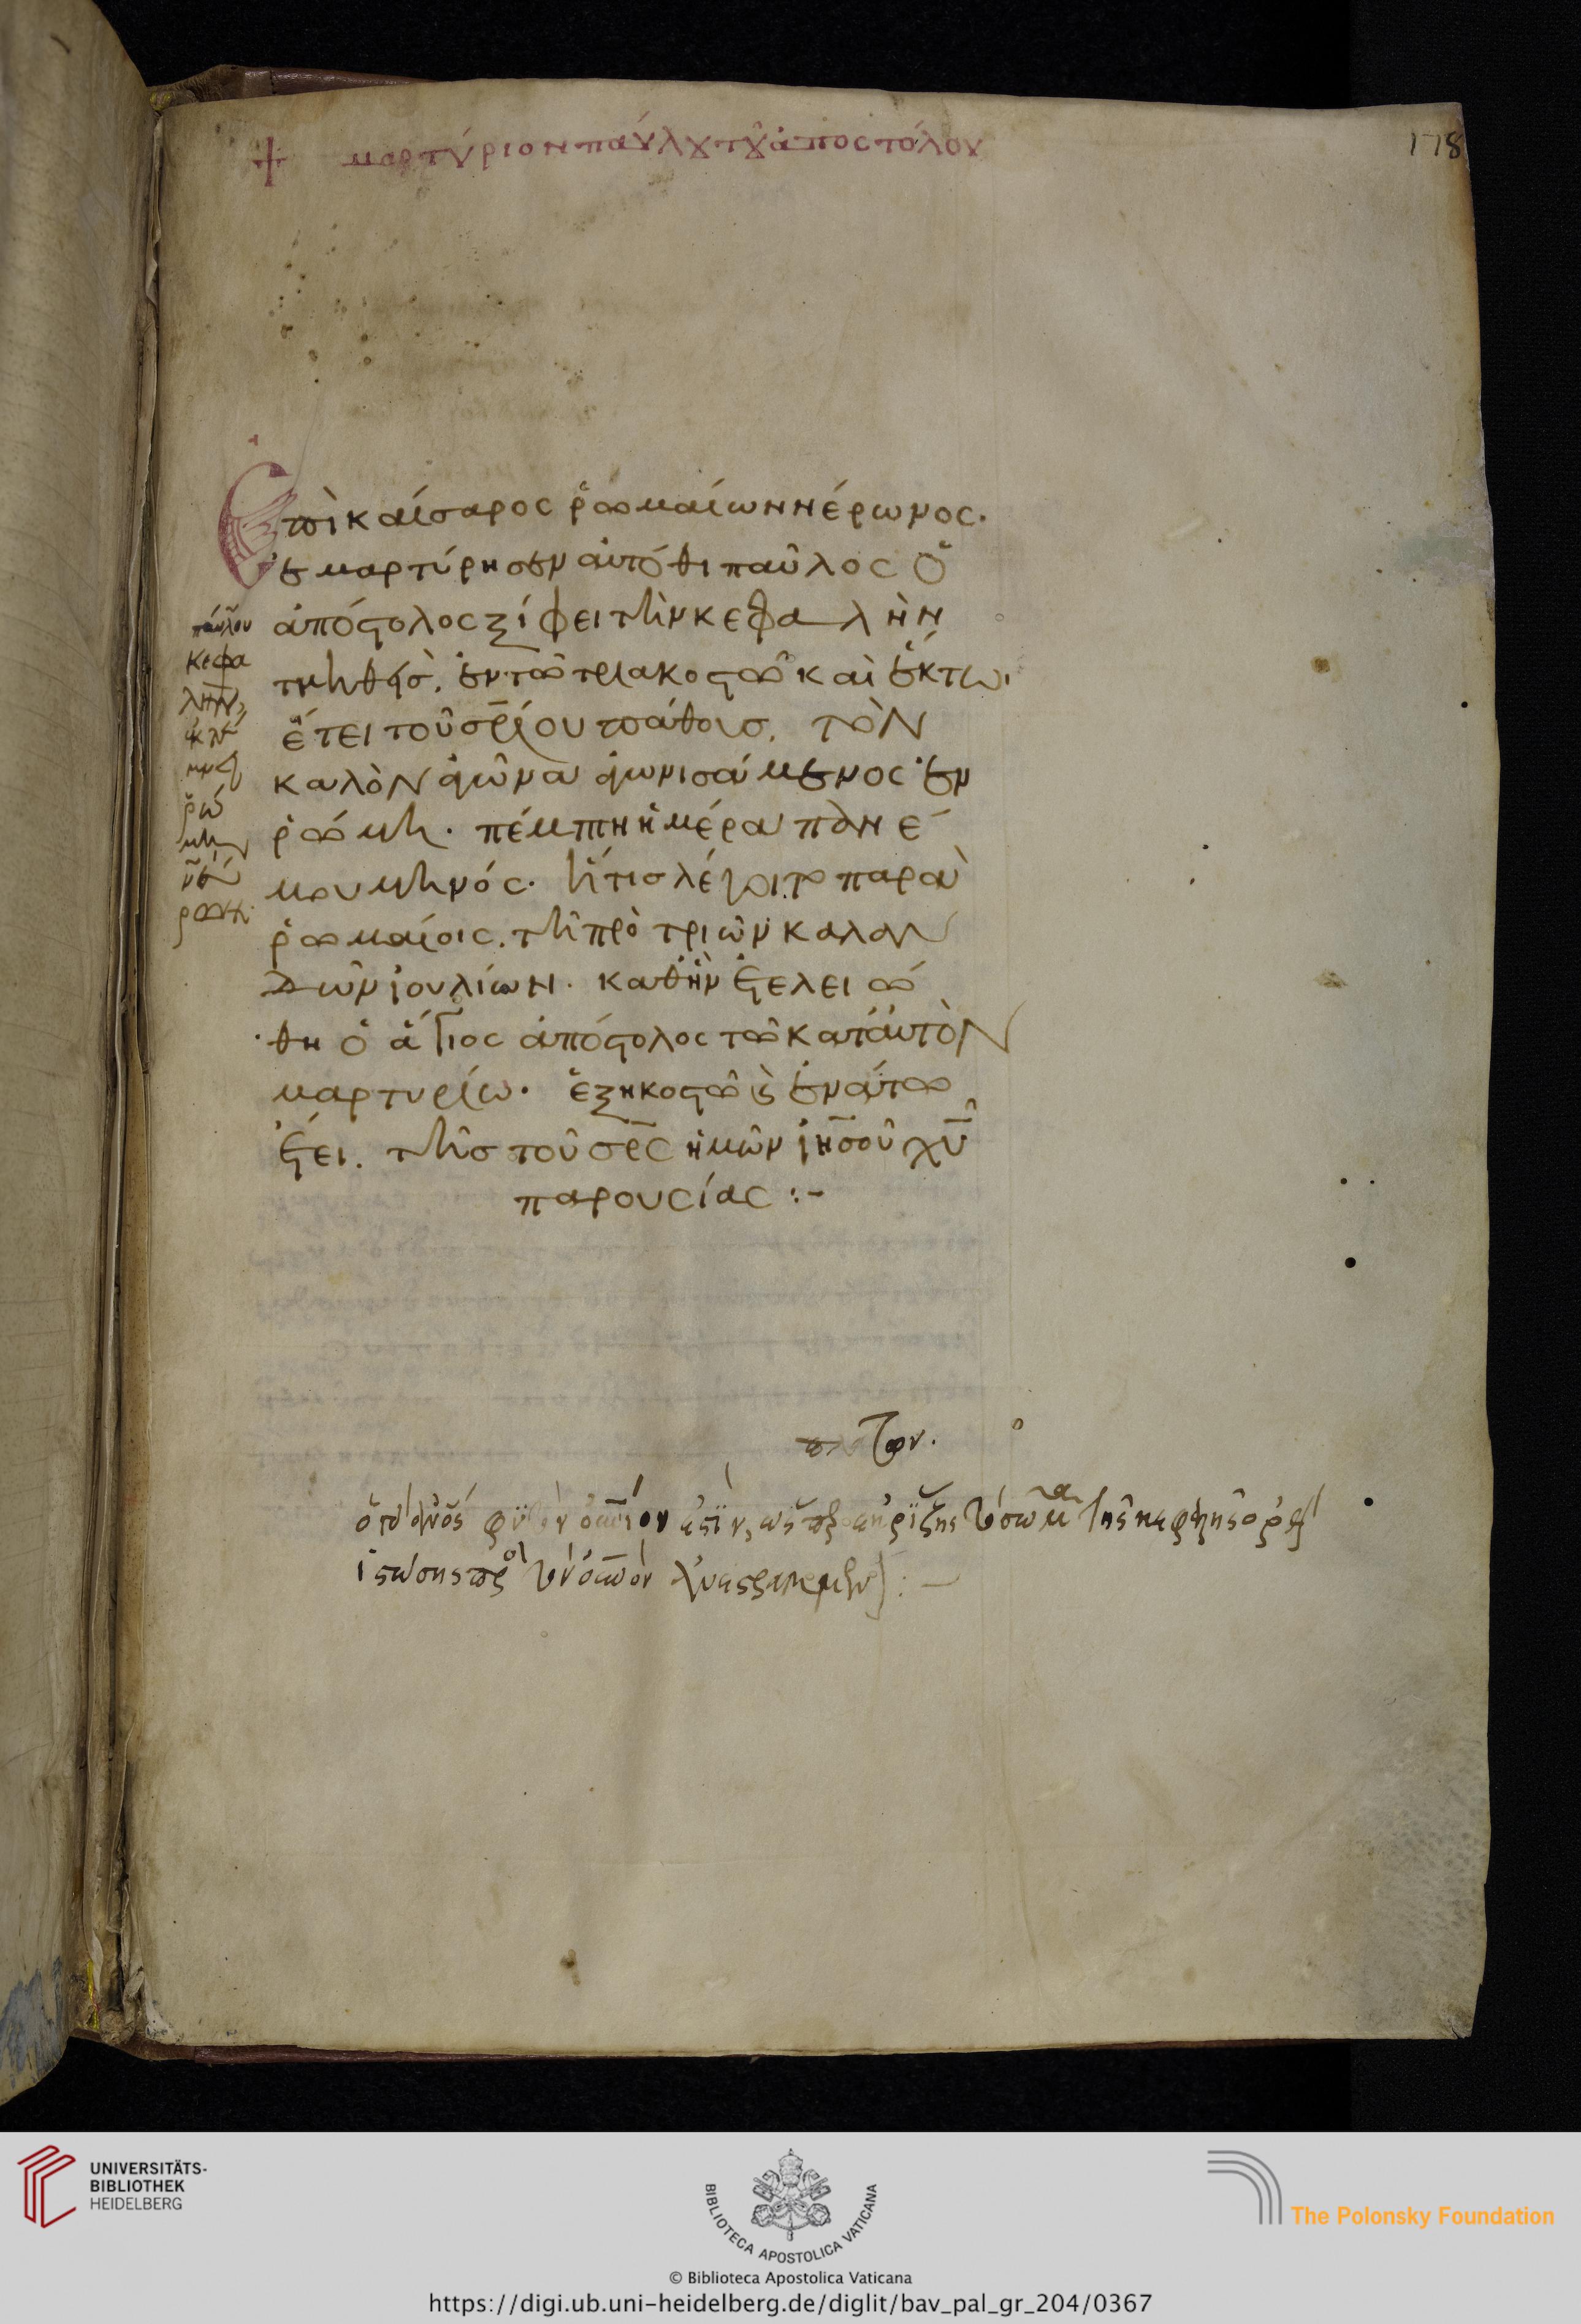 μαρτύριον παύλου τοῦ ἀποστόλου
178
Ἐπὶ καίσαρος ῥωμαίων νέρωνος.
ἐμαρτύρησεν αὐτόθι παῦλος ὁ
ἀπόστολος ξίφει τὴν κεφαλὴν
τμηθεὶς. ἐν τῶ τριακοστῶ καὶ ἕκτωι
ἔτει τοῦ σ̅ρ̅ίου πάθους. τὸν
καλὸν ἀγῶνα ἀγωνισάμενος ἐν
ῥώμη. πέμπτη ἡμέρα πανέ
μου μηνός. ἥτις λέγοιτο παρὰ
ῥωμαίοις. τῆ πρὸ τριῶν καλαν
δῶν ἰουλίων. καθ ἣν ἐτελειώ
θη ὁ ἅγιος ἀπόστολος τῶ κατ αὐτὸν
μαρτυρίω. ἑξηκοστῶ καὶ ἐνάτω
ἔτει. τῆς τοῦ σ̅ρ̅ς ἡμῶν ἰησοῦ χ̅υ̅
παρουσίας :-
παύλου
κεφα
λὴν
ῥώ
μη
UNIVERSITÄTS-
BIBLIOTHEK
HEIDELBERG
BIBLIOTECA APOSTOLICA VATICANA
The Polonsky Foundation
© Biblioteca Apostolica Vaticana
https://digi.ub.uni-heidelberg.de/diglit/bav_pal_gr_204/0367